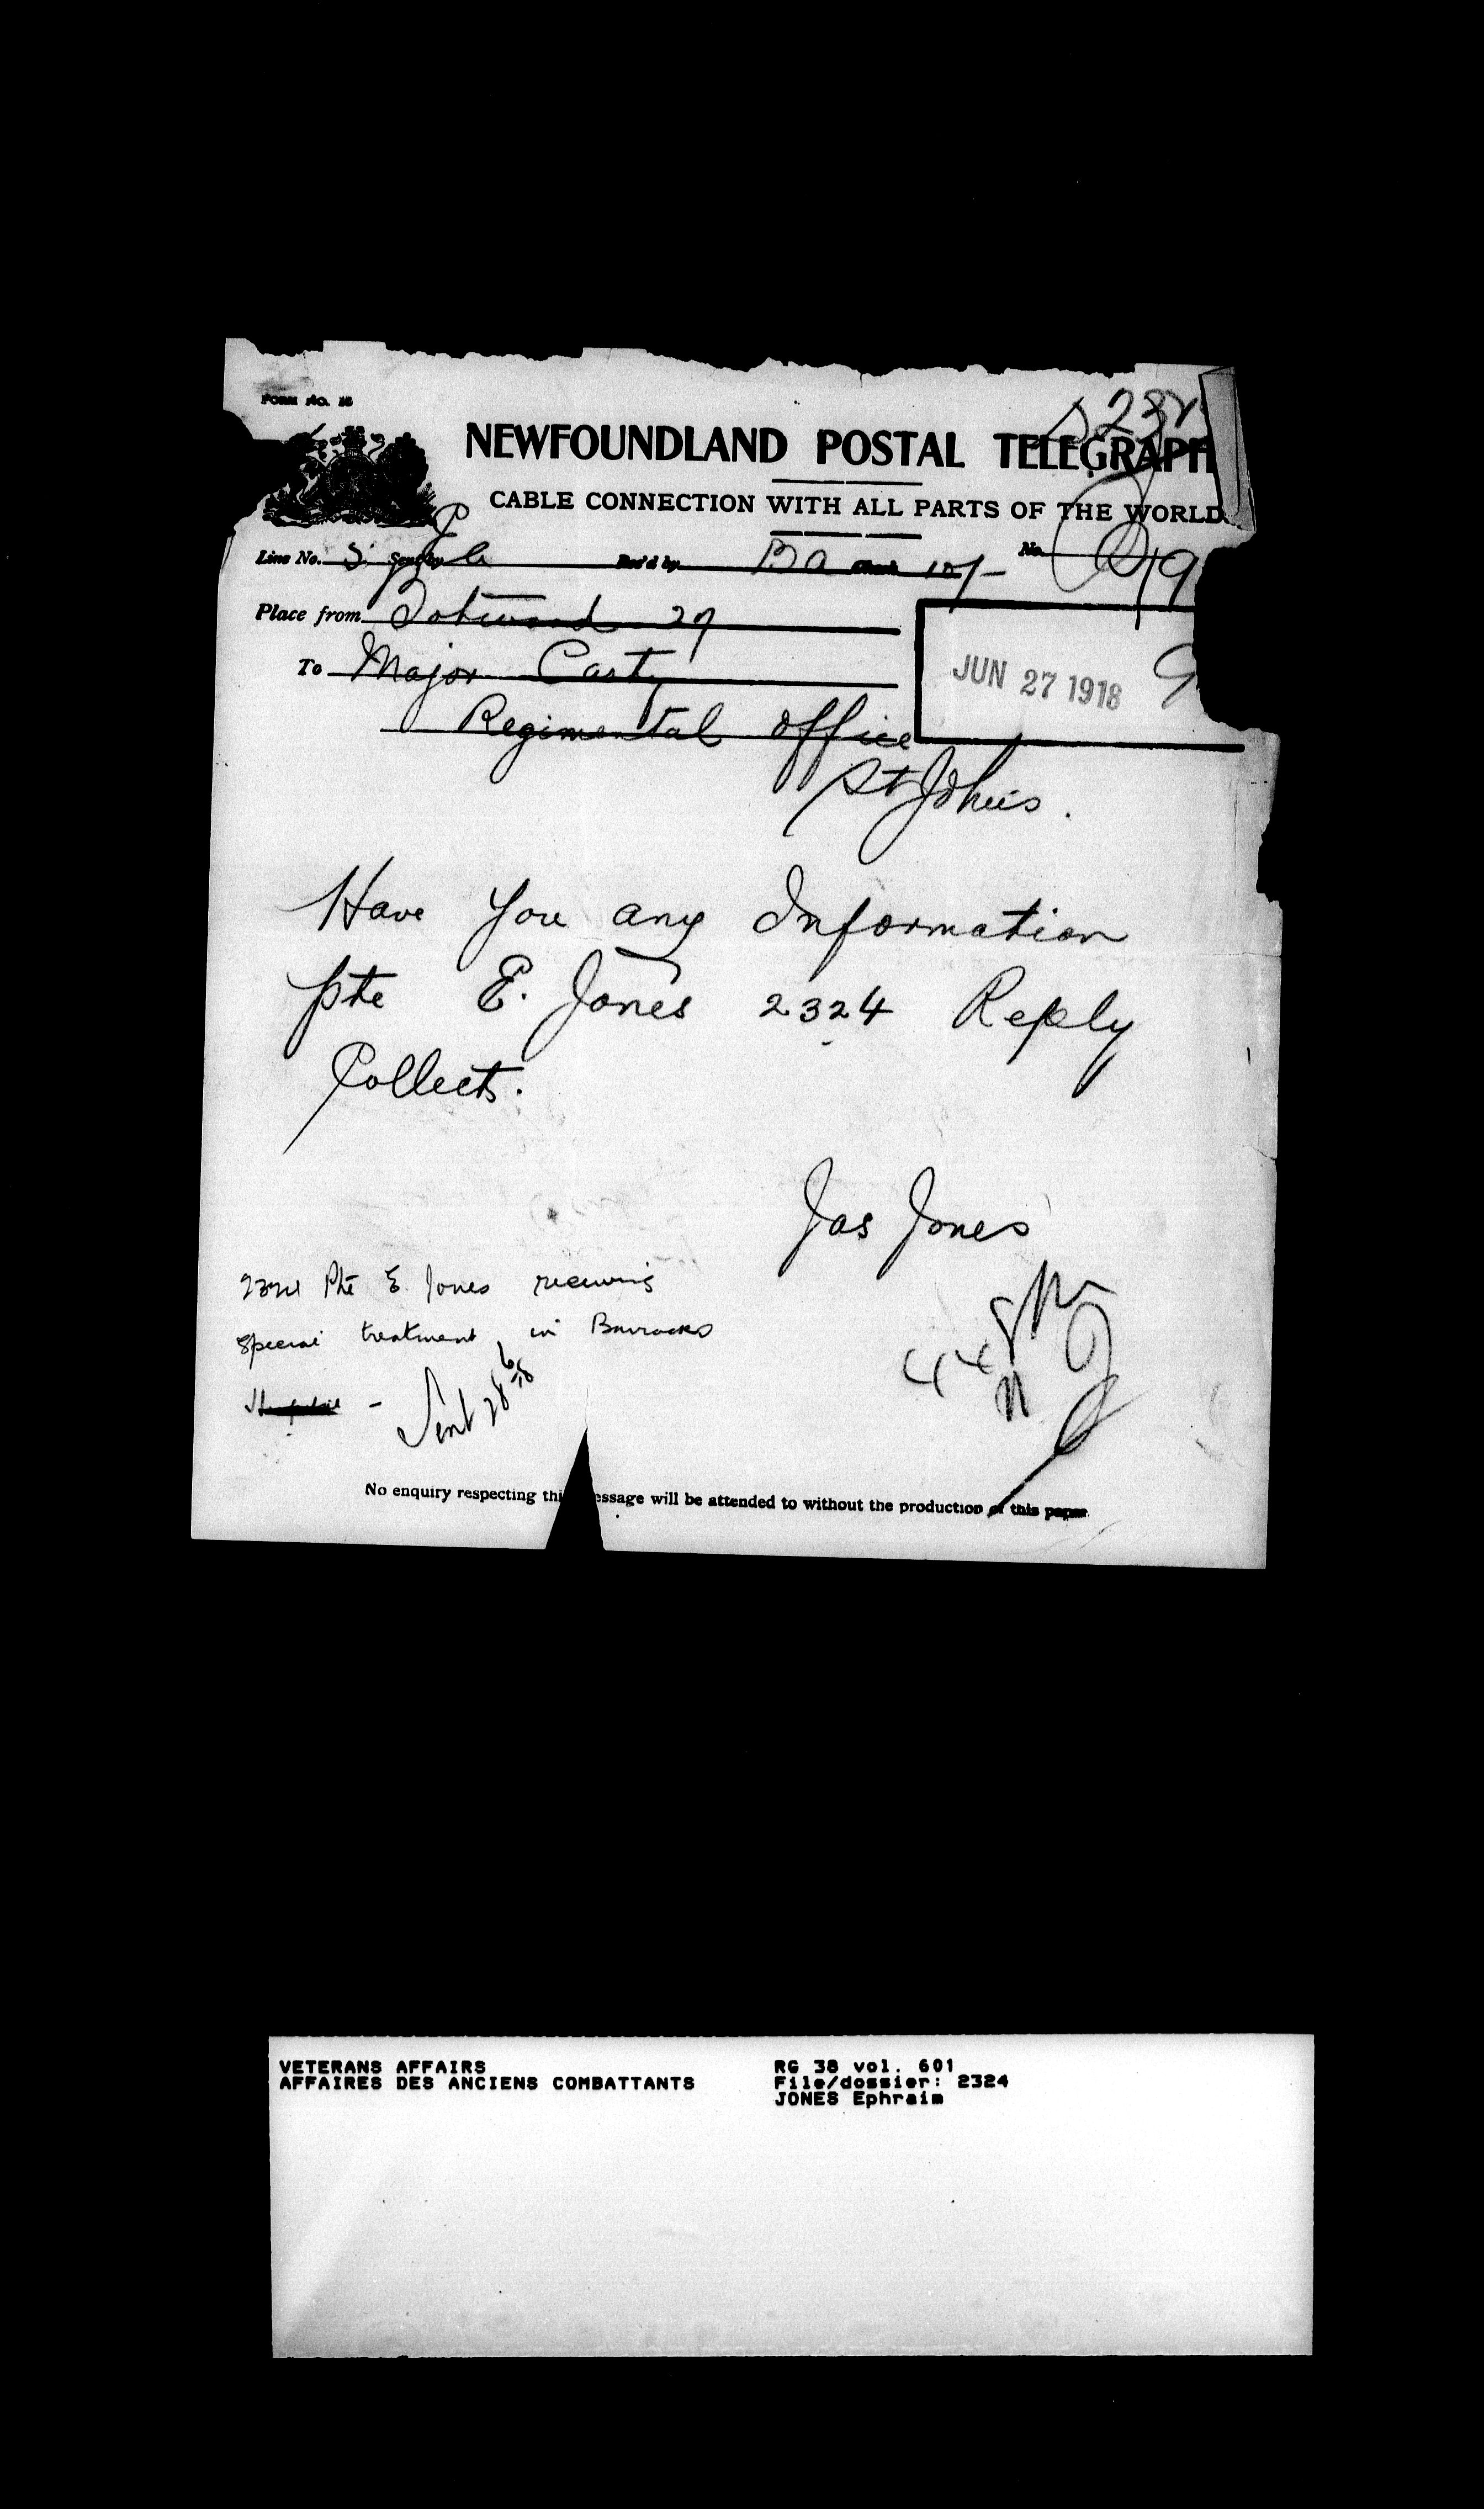 FORM NO. 18
NEWFOUNDLAND POSTAL TELEGRAPH
CABLE CONNECTION WITH ALL PARTS OF THE WORLD.
Line No. 3 Sent by Rec'd by Ba Check 10/- No.
Place from Botwood 27
To Major Carty
Regimental Office
St Johns.
JUN 27 1918
Have you any Information
Pte E. Jones 2324 Reply
Collect.
Jas Jones
2324 Pte E. Jones receiving
special treatment in Barracks
Hospital -
Sent 28/6/18
No enquiry respecting thi essage will be attended to without the production of this paper
VETERANS AFFAIRS
AFFAIRES DES ANCIENS COMBATTANTS
RG 38 vol. 601
File/dossier: 2324
JONES Ephraim